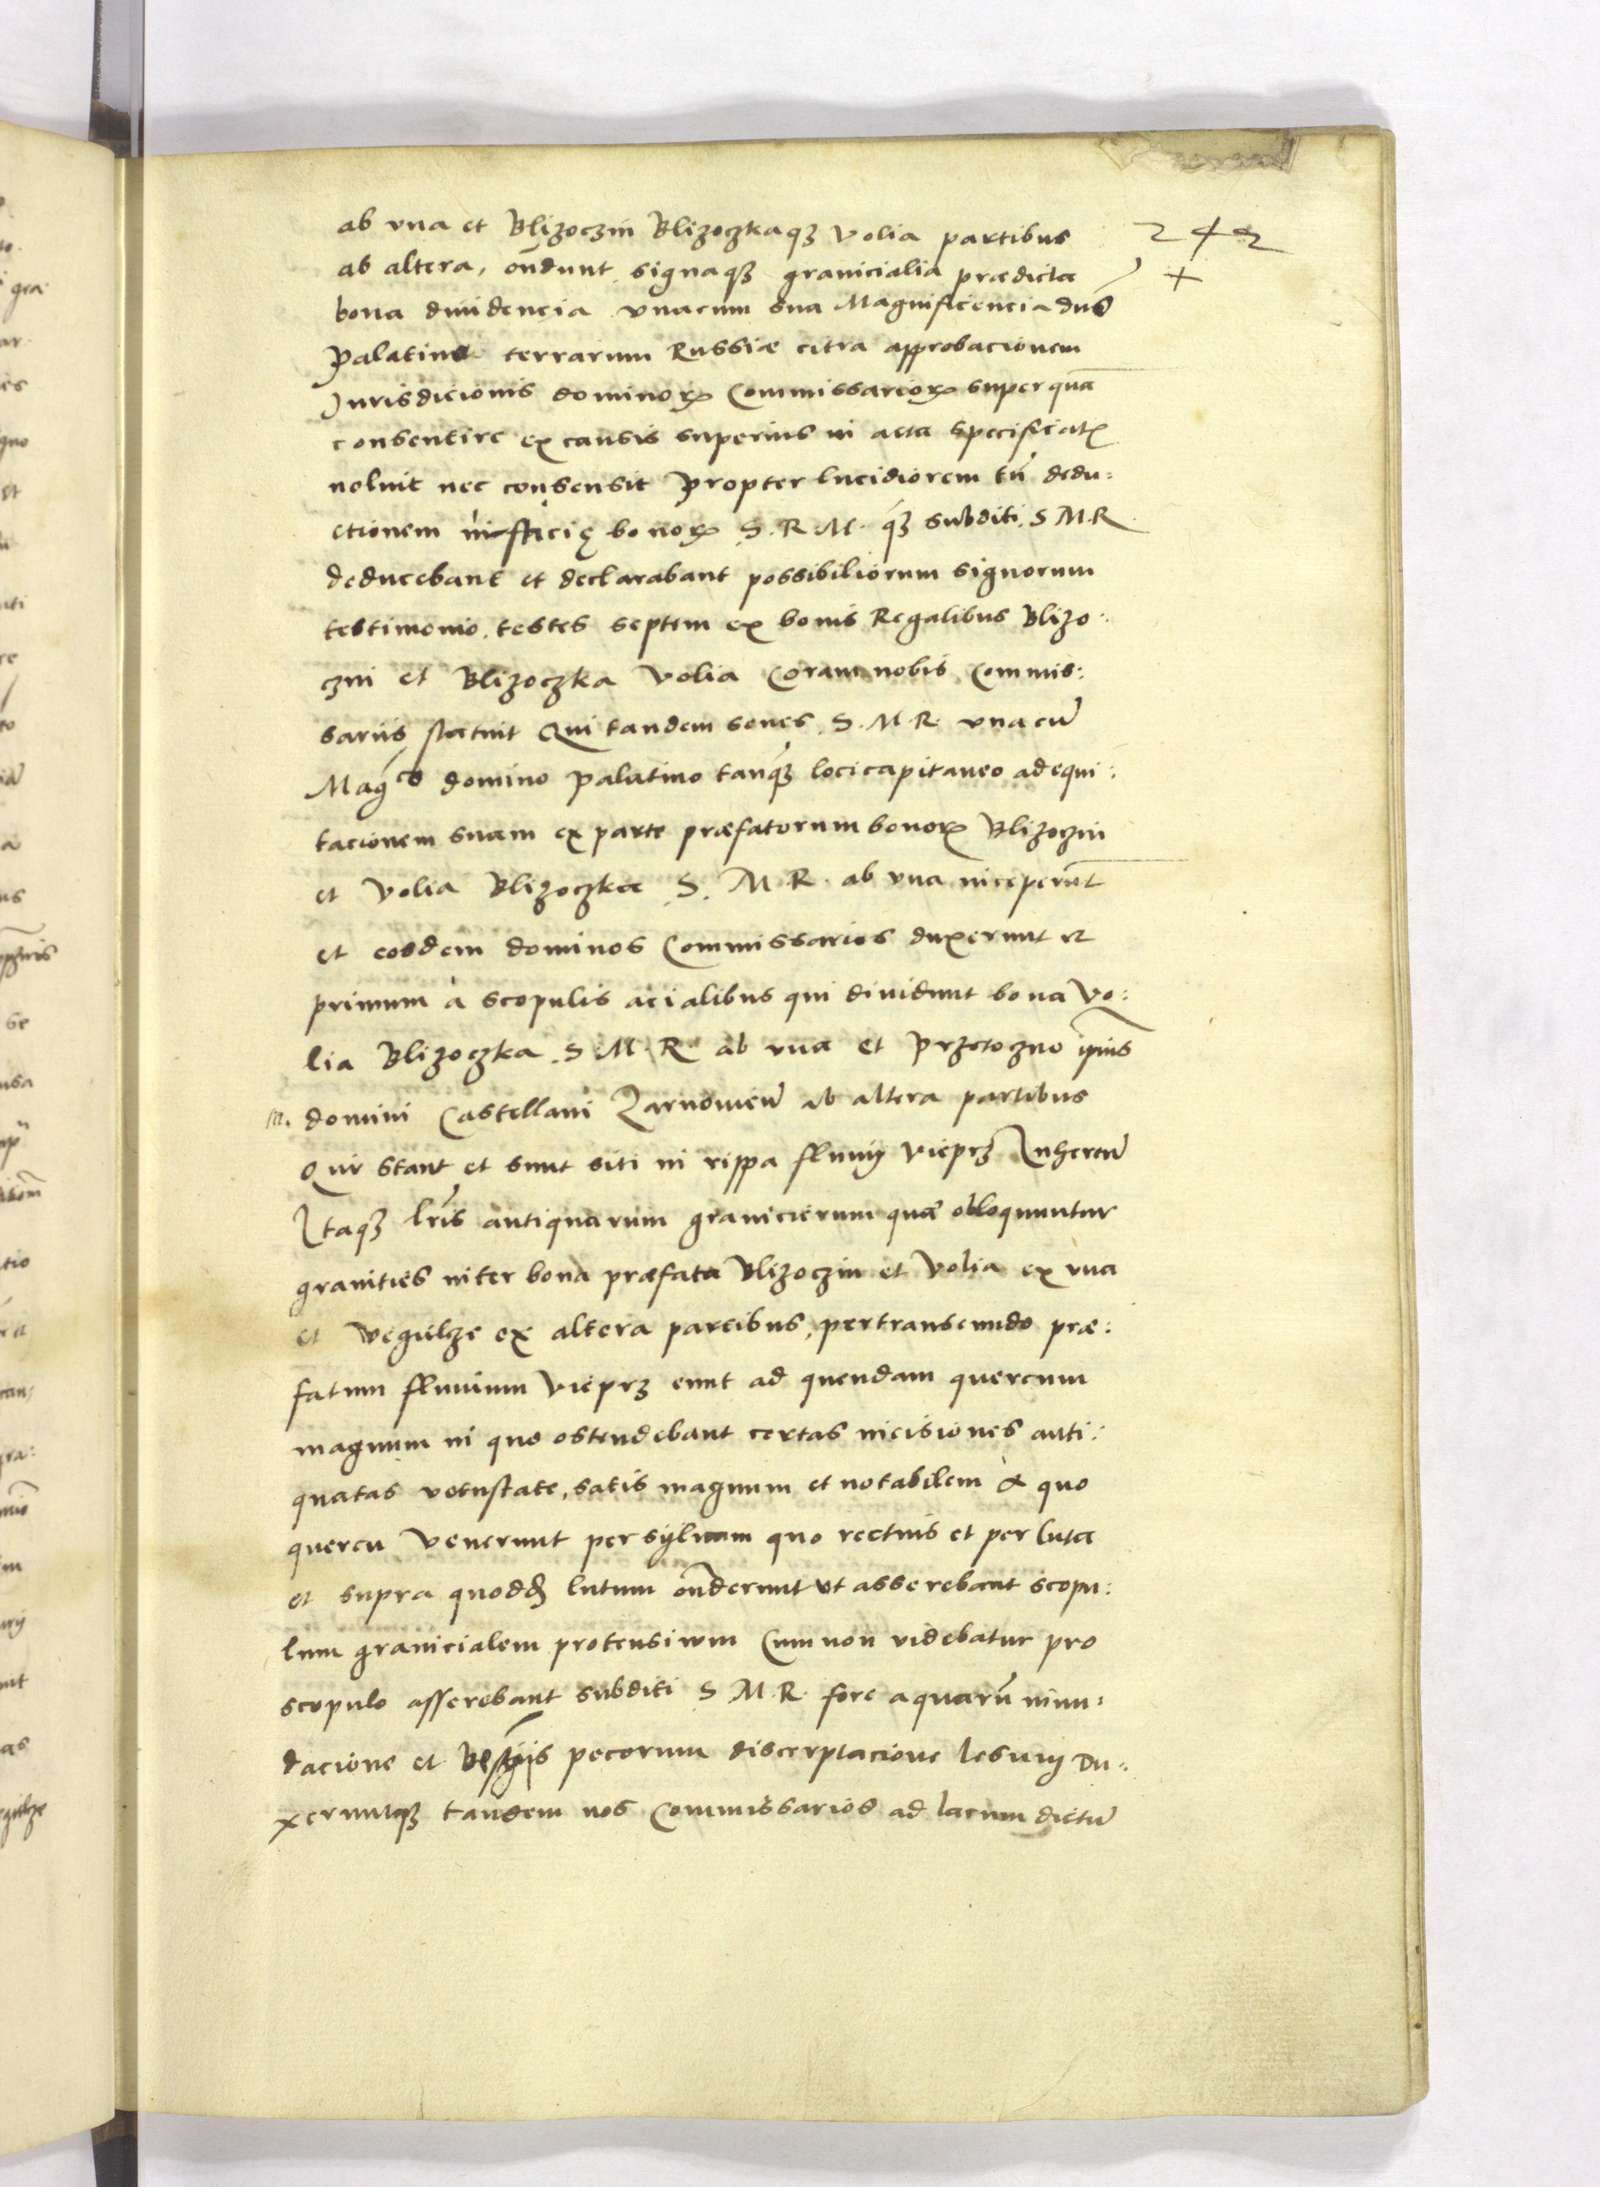 ab vna et Blizoczin Blizoczkaqz Volia partibus 242
ab altera, on̄dunt signaqz granicialia prædicta +
bona diuidencia vnacum sua Magnificencia dn̄s
Palatinus terrarum Russiæ citra approbacionem
Jurisdicionis dominoꝝ Commissarioꝝ superquā
consentire ex causis superius in acta specificatꝭ
noluit nec consensit Propter lucidiorem tn̄ dedu:
ctionem in facię bonoꝝ S. R. M. qz subditi S M R
deducebant et declarabant possibiliorum signorum
testimonio, testes septem ex bonis Regalibus Blizo:
czni et Blizoczka Volia Coram nobis Commis:
sariis statuit Qui tandem sones S. M. R. vna cū
Mag̅co domino Palatino tanqz loci capitaneo adequi:
tacionem suam ex parte præfatorum bonoꝝ Blizoczin
et Volia Blizoczka S. M. R. ab vna inceperūt
et eosdem dominos Commissarios duxerunt et
primum à scopulis acialibus qui diuidunt bona Vo:
lia Blizoczka S. M. R ab vna et Przetoczno ip̄ius
m. domini Castellani Zarnowieň ab altera partibus
Qui stant et sunt siti in rippa fluuij Vieprz
Itaqz lr̄is antiquarum granicierum quæ obloquuntur
granities inter bona præfata Blizoczin et Volia ex vna
et Wegulze ex altera partibus, pertranseundo præ:
fatum fluuium Vieprz eunt ad quendam quercum
magnum in quo ostendebant certas incisiones anti:
quatas vetustate, satis magnum et notabilem à quo
quercu venerunt per syluam quo rectius et per luta
et supra quodd̄ lutum on̄derunt vt asserebant scopu:
lum granicialem protensiuum Cum non videbatur pro
scopulo asserebant subditi S M R. fore aquarū inun:
dacione et pecorum discerptacione lesum Du:
xeruntqz tandem nos Commissarios ad lacum dictū